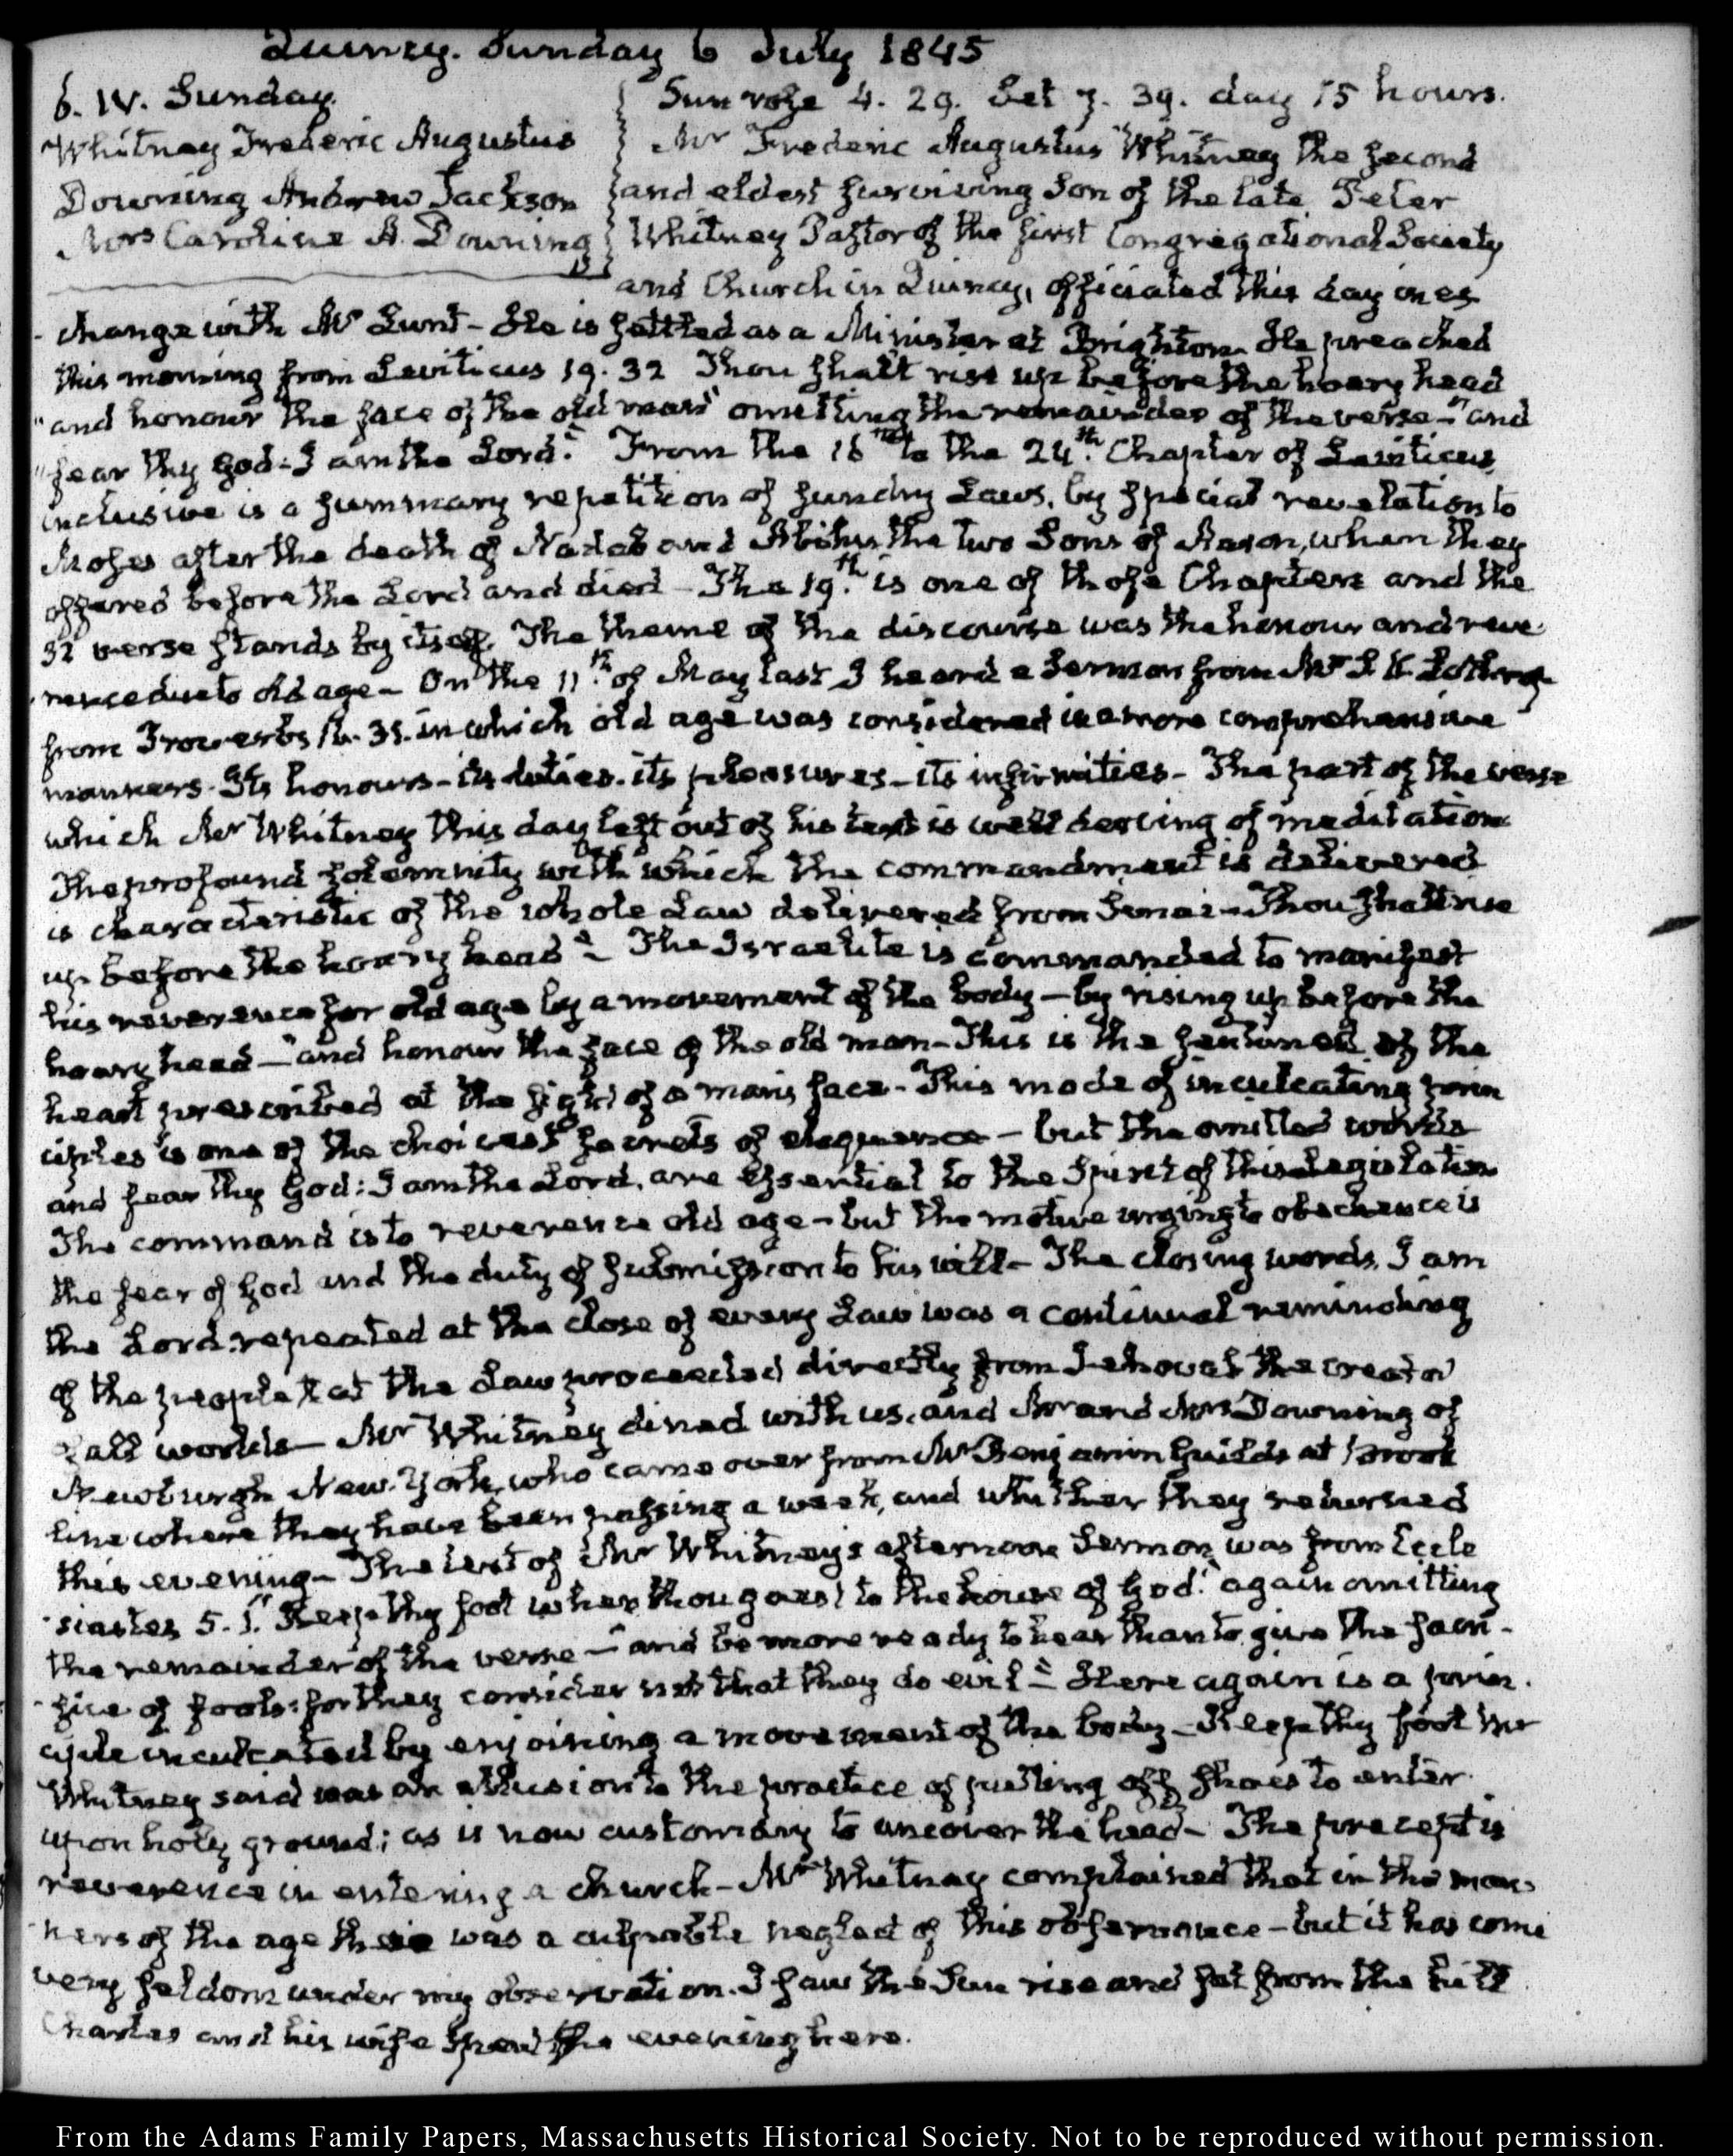 Quincy. Sunday 6 July 1845
6. IV. Sunday.
Whitney Frederic Augustus
Downing Andrew Jackson
Mrs Caroline A. Downing
Sun rose 4. 29. Set 7. 39. day 15 hours.
Mr Frederic Augustus Whitney the second
and eldest surviving Son of the late Peter
Whitney Pastor of the first Congregational Society
and Church in Quincy, officiated this day in ex
-change with Mr Lunt - He is settled as a Minister at Brighton. He preached
this morning from Leviticus 19. 32 Thou shalt rise up before the hoary head
"and honour the face of the old man" omitting the remainder of the verse - "and
"fear thy God - I am the Lord." From the 16th to the 24th. Chapter of Leviticus
inclusive is a summary repetition of sundry Laws, by special revelation to
Moses after the death of Nadab and Abihu the two Sons of Aaron, when they
offered before the Lord and died - The 19th. is one of those Chapters and the
32 verse stands by itself. The theme of the discourse was the honour and reve
-rence due to old age - On the 11th. of May last I heard a Sermon from Mr S K Lothrop
from Proverbs 16. 31. in which old age was considered in a more comprehensive
manners. Its honours - its duties. its pleasures - its infirmities - The part of the verse
which Mr Whitney this day left out of his text is well deserving of meditation
The profound solemnity with which the commandment is delivered
is characteristic of the whole Law delivered from Sinai - "Thou shalt rise
up before the hoary head" - The Israelite is commanded to manifest
his reverence for old age by a movement of the body - by rising up before the
hoary head - "and honour the face of the old man - This is the sentiment of the
heart prescribed at the sight of a man's face - This mode of inculcating prin
ciples is one of the choicest secrets of eloquence - but the omitted words
and fear thy God: I am the Lord, are essential to the Spirit of this Legislation
The command is to reverence old age - but the motive urging to obedience is
the fear of God and the duty of submission to his will - The closing words, I am
the Lord. repeated at the close of every Law was a continual reminding
of the people that the Law proceeded directly from Jehovah the creator
of all worlds - Mr Whitney dined with us, and Mr and Mrs Downing of
Newburgh New-York, who came over from Mr Benjamin Guilds at Brook
line where they have been passing a week, and whither they returned
this evening - The text of Mr Whitney's afternoon Sermon was from Eccle
-siastes 5. 1. "Keep thy foot when thou goest to the house of God." again omitting
the remainder of the verse - "and be more ready to hear than to give the sacri-
-fice of fools: for they consider not that they do evil" - Here again is a prin-
ciple inculcated by enjoining a movement of the body - Keep thy foot Mr
Whitney said was an allusion to the practice of putting off shoes to enter
upon holy ground; as is now customary to uncover the head - The precept is
reverence in entering a church - Mr Whitney complained that in the man-
ners of the age there was a culpable neglect of this observance - but it has come
very seldom under my observation. I saw the Sun rise and set from the hill
Charles and his wife spent the evening here.
From the Adams Family Papers, Massachusetts Historical Society. Not to be reproduced without permission.